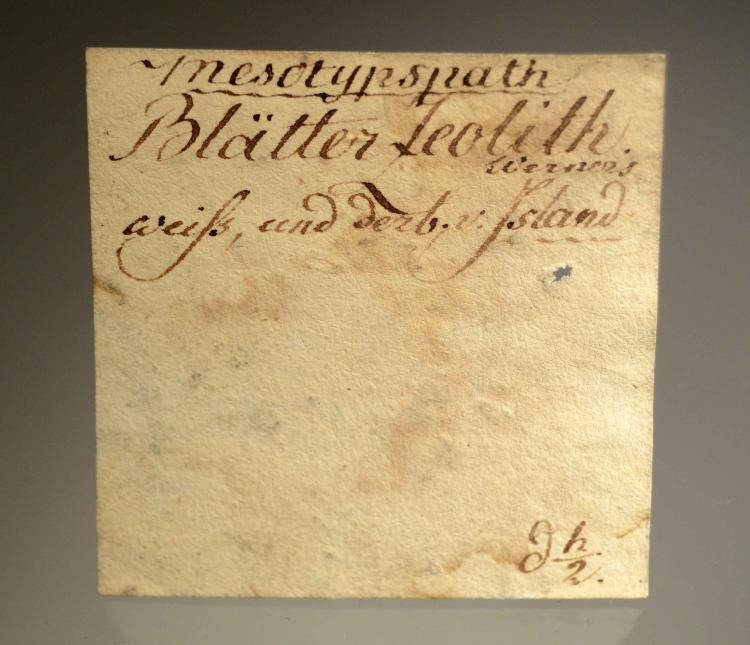 Mesotypspath
Blätter Zeolith
Werners
weiß, und derb. v. Island
h
2.